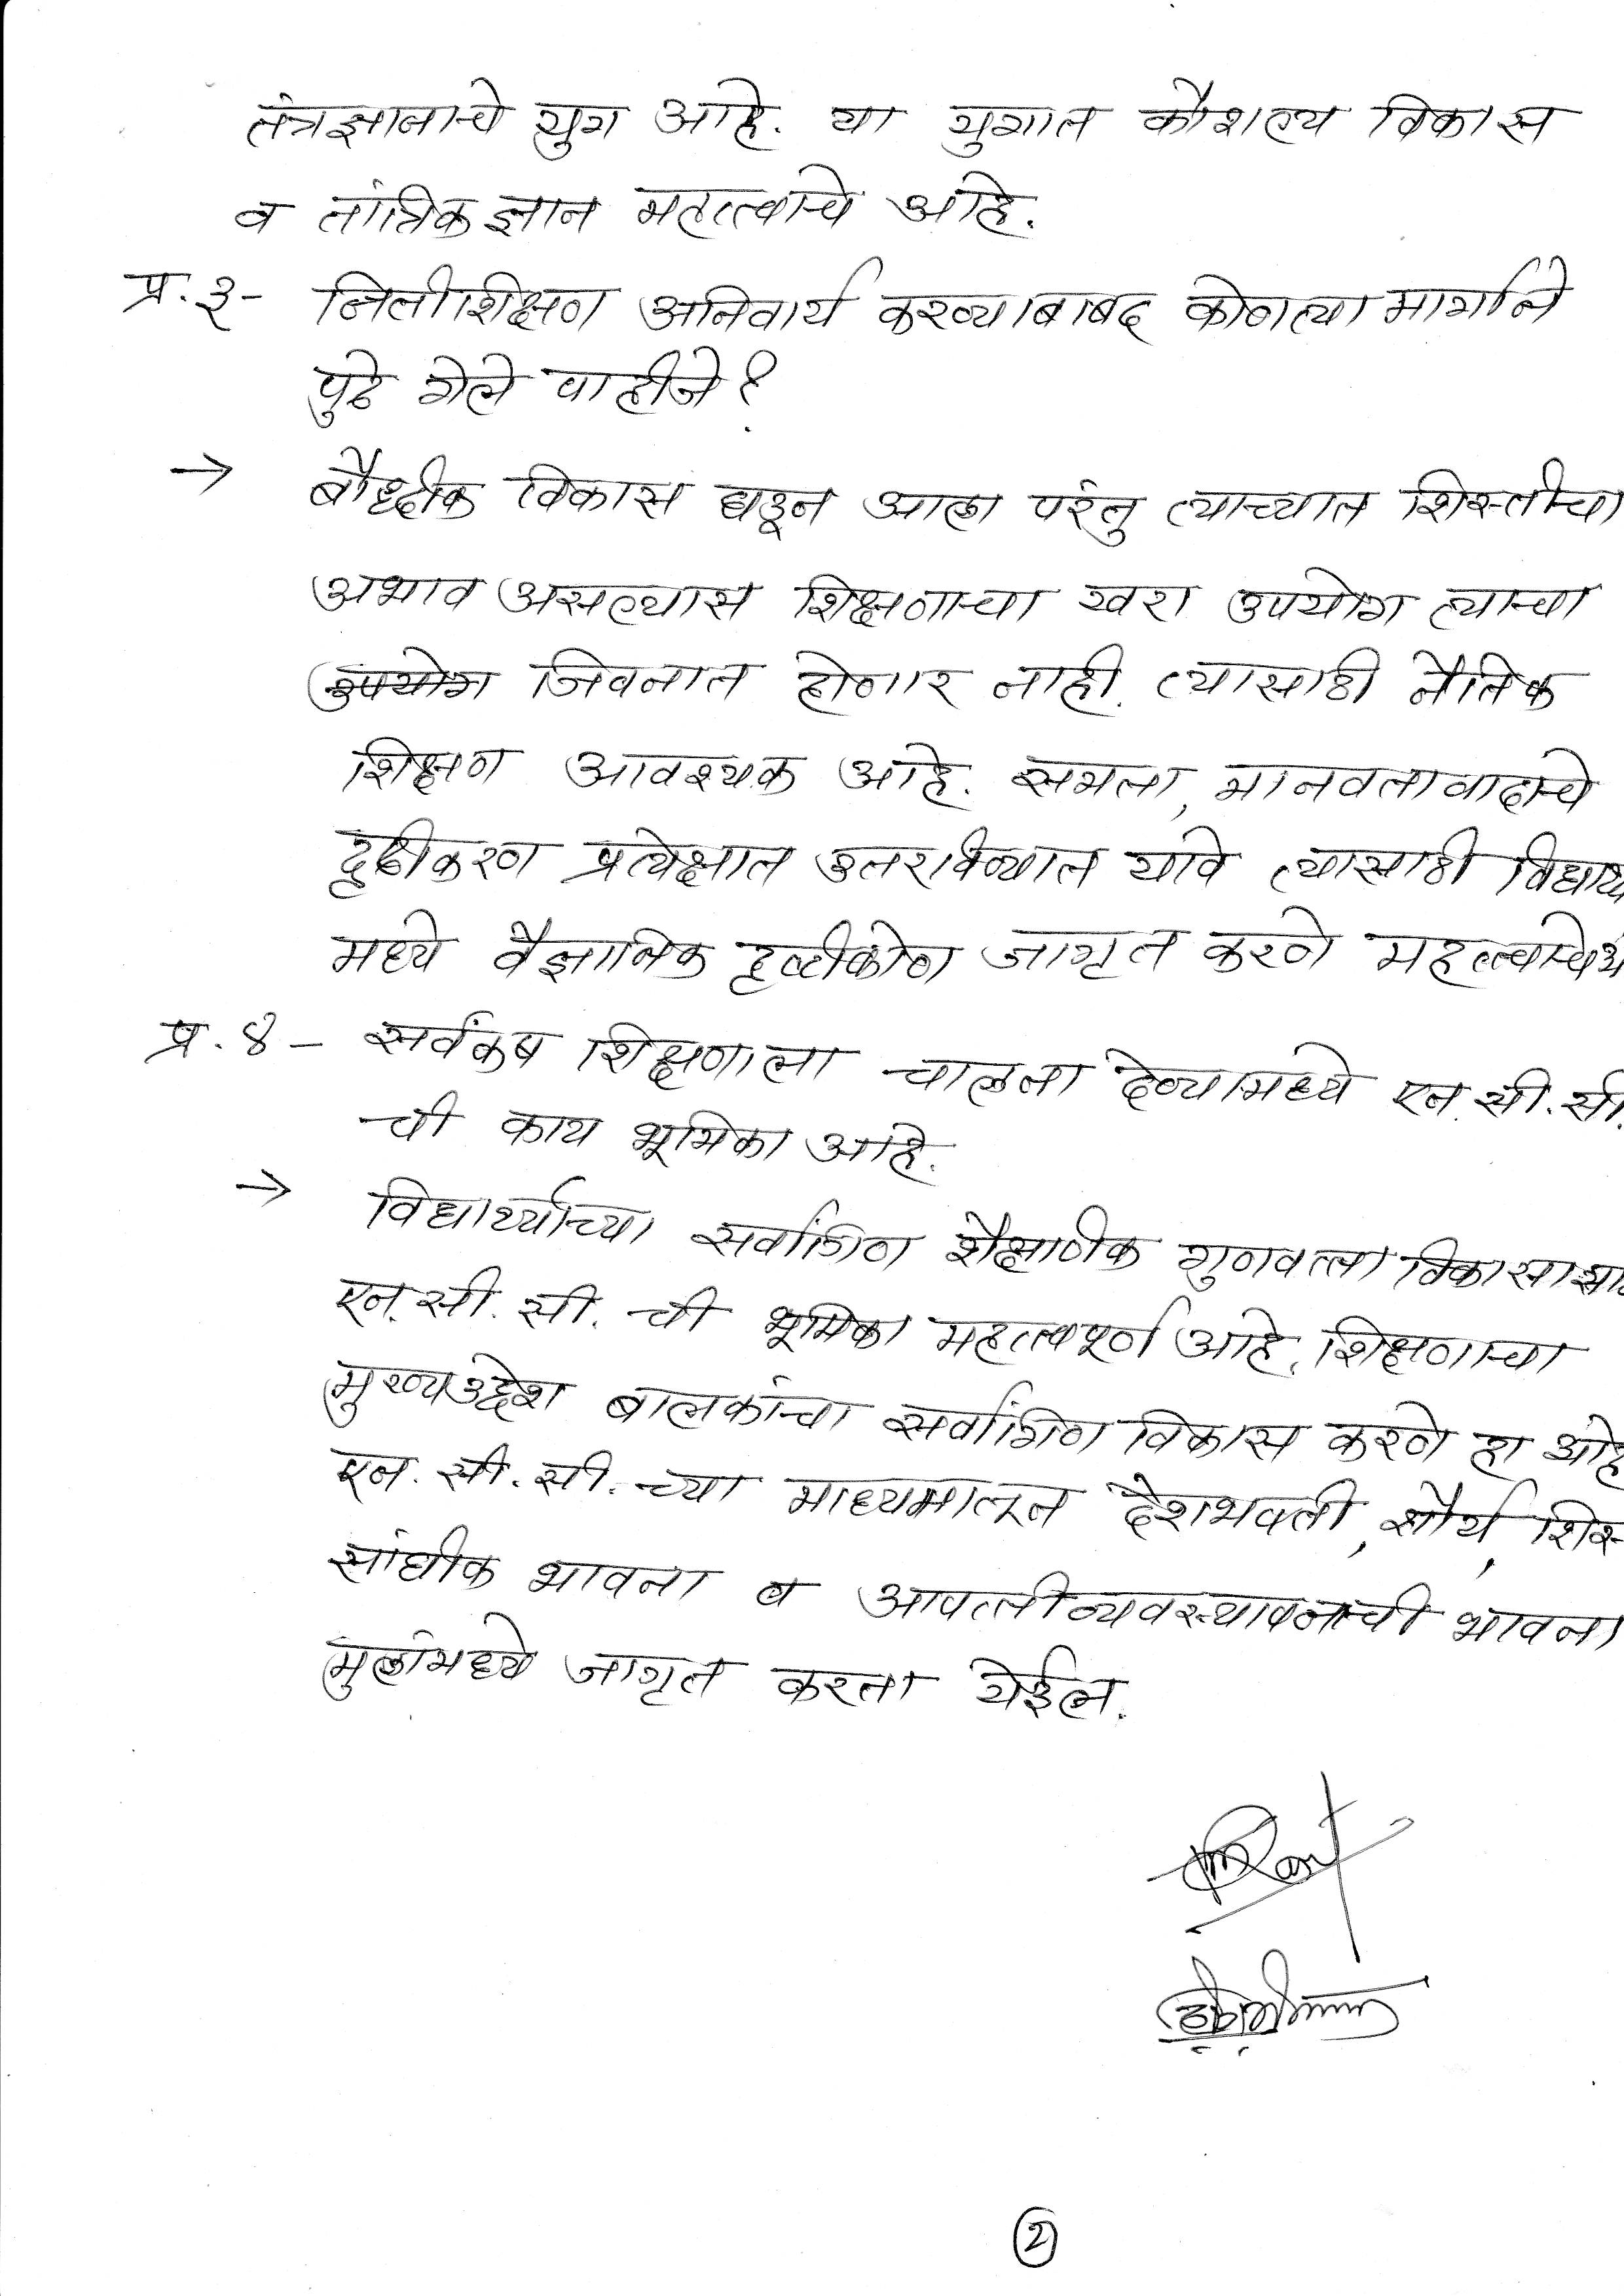 तंत्रज्ञानाचे युग आहे. या युगात कौशल्य विकास
व तांत्रिक ज्ञान महत्त्वाचे आहे.
प्र. ३- नितीशिक्षण अनिवार्य करण्याबाबद कोणत्या मार्गाने
पुढे गेले पाहीजे?
→ बौध्दीक विकास घडून आला परंतु त्याच्यात शिस्तीचा
अभाव असल्यास शिक्षणाचा खरा उपयोग त्याचा
उपयोग जिवनात होणार नाही. त्यासाठी नैतिक
शिक्षण आवश्यक आहे. समता, मानवतावादाचे
दृढीकरण प्रत्येक्षात उतरविण्यात यावे त्यासाठी विद्यार्थ्य
मध्ये वैज्ञानिक दृष्टीकोण जागृत करणे महत्त्वाचे आ
प्र. ४ - सर्वंकष शिक्षणाला चालना देण्यामध्ये एन. सी. सी.
ची काय भूमिका आहे.
→ विद्यार्थ्यांच्या सर्वांगिण शैक्षाणीक गुणवत्ता विकासा
एन. सी. सी. ची भूमिका महत्त्वपूर्ण आहे. शिक्षणाचा
मुख्य उद्देश बालकांचा सर्वांगिण विकास करणे हा आहे
एन. सी. सी. च्या माध्यमातून देशभक्ती, शौर्य, शिस्
सांघीक भावना व आपत्ती व्यवस्थापनाची भावना
मुलांमध्ये जागृत करता येईल.
2